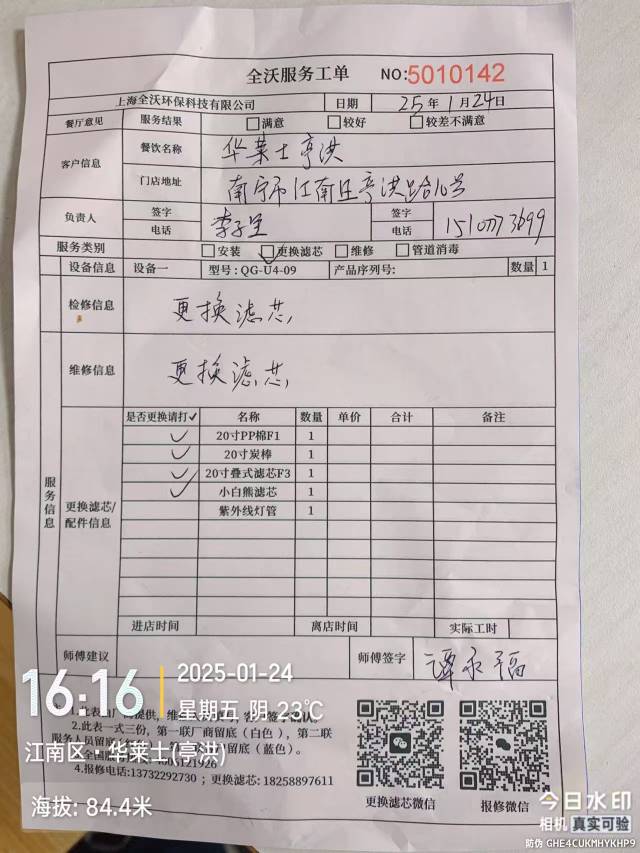 全沃服务工单 NO:5010142
上海全沃环保科技有限公司 日期 25年1月24日
餐厅意见 服务结果 满意 较好 较差不满意
客户信息 餐饮名称 华莱士亭洪
门店地址 南宁市江南区亭洪路10号
负责人 签字 电话 李 签字 电话
服务类别 安装 更换滤芯 维修 管道消毒
设备信息 设备一 型号:QG-U4-09 产品序列号: 数量 1
检修信息 更换滤芯
维修信息 更换滤芯
服务信息
更换滤芯/配件信息
是否更换请打✓ 名称 数量 单价 合计 备注
✓ 20寸PP棉F1 1
✓ 20寸炭棒 1
✓ 20寸叠式滤芯F3 1
✓ 小白熊滤芯 1
紫外线灯管 1
进店时间 离店时间 实际工时
师傅建议 师傅签字 谭永福
16:16 2025-01-24
星期五 阴 23℃
江南区·华莱士(亭洪)
海拔: 84.4米
2.此表一式三份，第一联厂商留底（白色），第二联
服务人员留底 留底（蓝色）。
4.报修电话:13732292730；更换滤芯: 18258897611
更换滤芯微信 报修微信
今日水印
相机 真实可验
防伪 GHE4CUKMHYKHP9